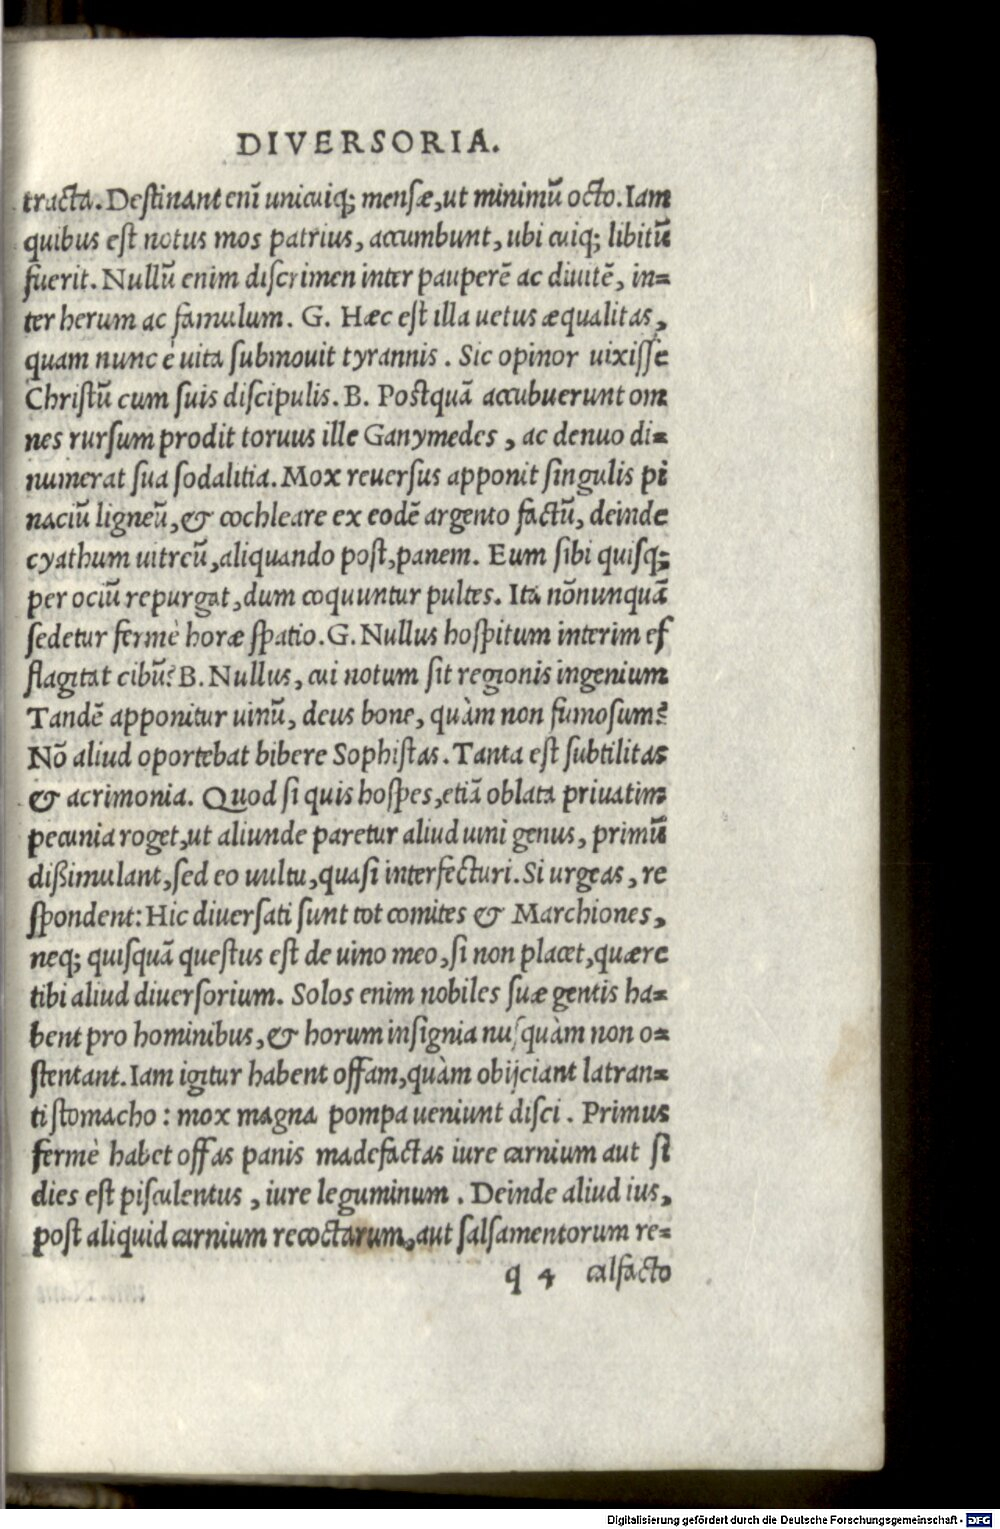 DIVERSORIA.
tracta. Destinant enĩ unicuiq; mensæ, ut minimũ octo. Iam
quibus est notus mos patrius, accumbunt, ubi cuiq; libitũ
fuerit. Nullũ enim discrimen inter pauperẽ ac diuitẽ, in=
ter herum ac famulum. G. Hæc est illa uetus æqualitas,
quam nunc è uita submouit tyrannis. Sic opinor uixisse
Christũ cum suis discipulis. B. Postquã accubuerunt om
nes rursum prodit toruus ille Ganymedes, ac denuo di=
numerat sua sodalitia. Mox reuersus apponit singulis pi
naciũ ligneũ, & cochleare ex eodẽ argento factũ, deinde
cyathum uitreũ, aliquando post, panem. Eum sibi quisq;
per ociũ repurgat, dum coquuntur pultes. Ita nõnunquã
sedetur fermè horæ spatio. G. Nullus hospitum interim ef
flagitat cibũ? B. Nullus, cui notum sit regionis ingenium
Tandẽ apponitur uinũ, deus bone, quàm non fumosum?
Nõ aliud oportebat bibere Sophistas. Tanta est subtilitas
& acrimonia. Quod si quis hospes, etiã oblata priuatim
pecunia roget, ut aliunde paretur aliud uini genus, primũ
dißimulant, sed eo uultu, quasi interfecturi. Si urgeas, re
spondent: Hic diuersati sunt tot comites & Marchiones,
neq; quisquã questus est de uino meo, si non placet, quære
tibi aliud diuersorium. Solos enim nobiles suæ gentis ha=
bent pro hominibus, & horum insignia nusquàm non o=
stentant. Iam igitur habent offam, quàm obijciant latran=
ti stomacho: mox magna pompa ueniunt disci. Primus
fermè habet offas panis madefactas iure carnium aut si
dies est pisculentus, iure leguminum. Deinde aliud ius,
post aliquid carnium recoctarum, aut salsamentorum re=
q 4 calfacto
Digitalisierung gefördert durch die Deutsche Forschungsgemeinschaft - DFG